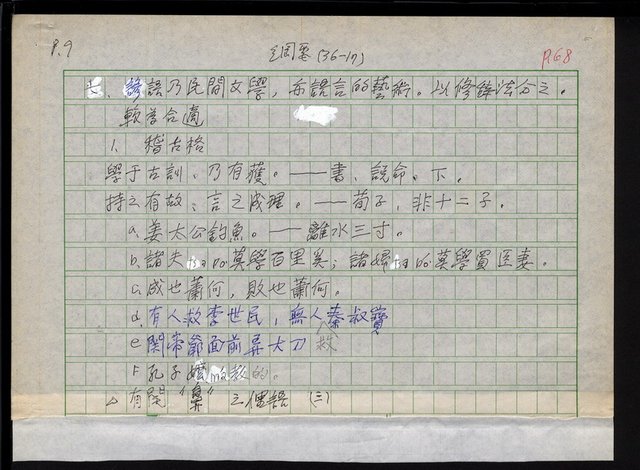 P.9
綱要(36-17)
P.68
諺語乃民間文學，亦語言的藝術。以修辭法分之。
較為合適
1. 稽古格
學于古訓、乃有獲。——書、說命、下。
持之有故、言之成理。——荀子，非十二子。
a.姜太公釣魚。——離水三寸。
b.諸夫 po莫學百里奚；諸婦 po莫學買臣妻。
c.成也蕭何，敗也蕭何。
d.有人救李世民，無人秦叔寶
救
e關帝爺面前弄大刀
F孔子 教的
△有關"梟"之俚語 (三)